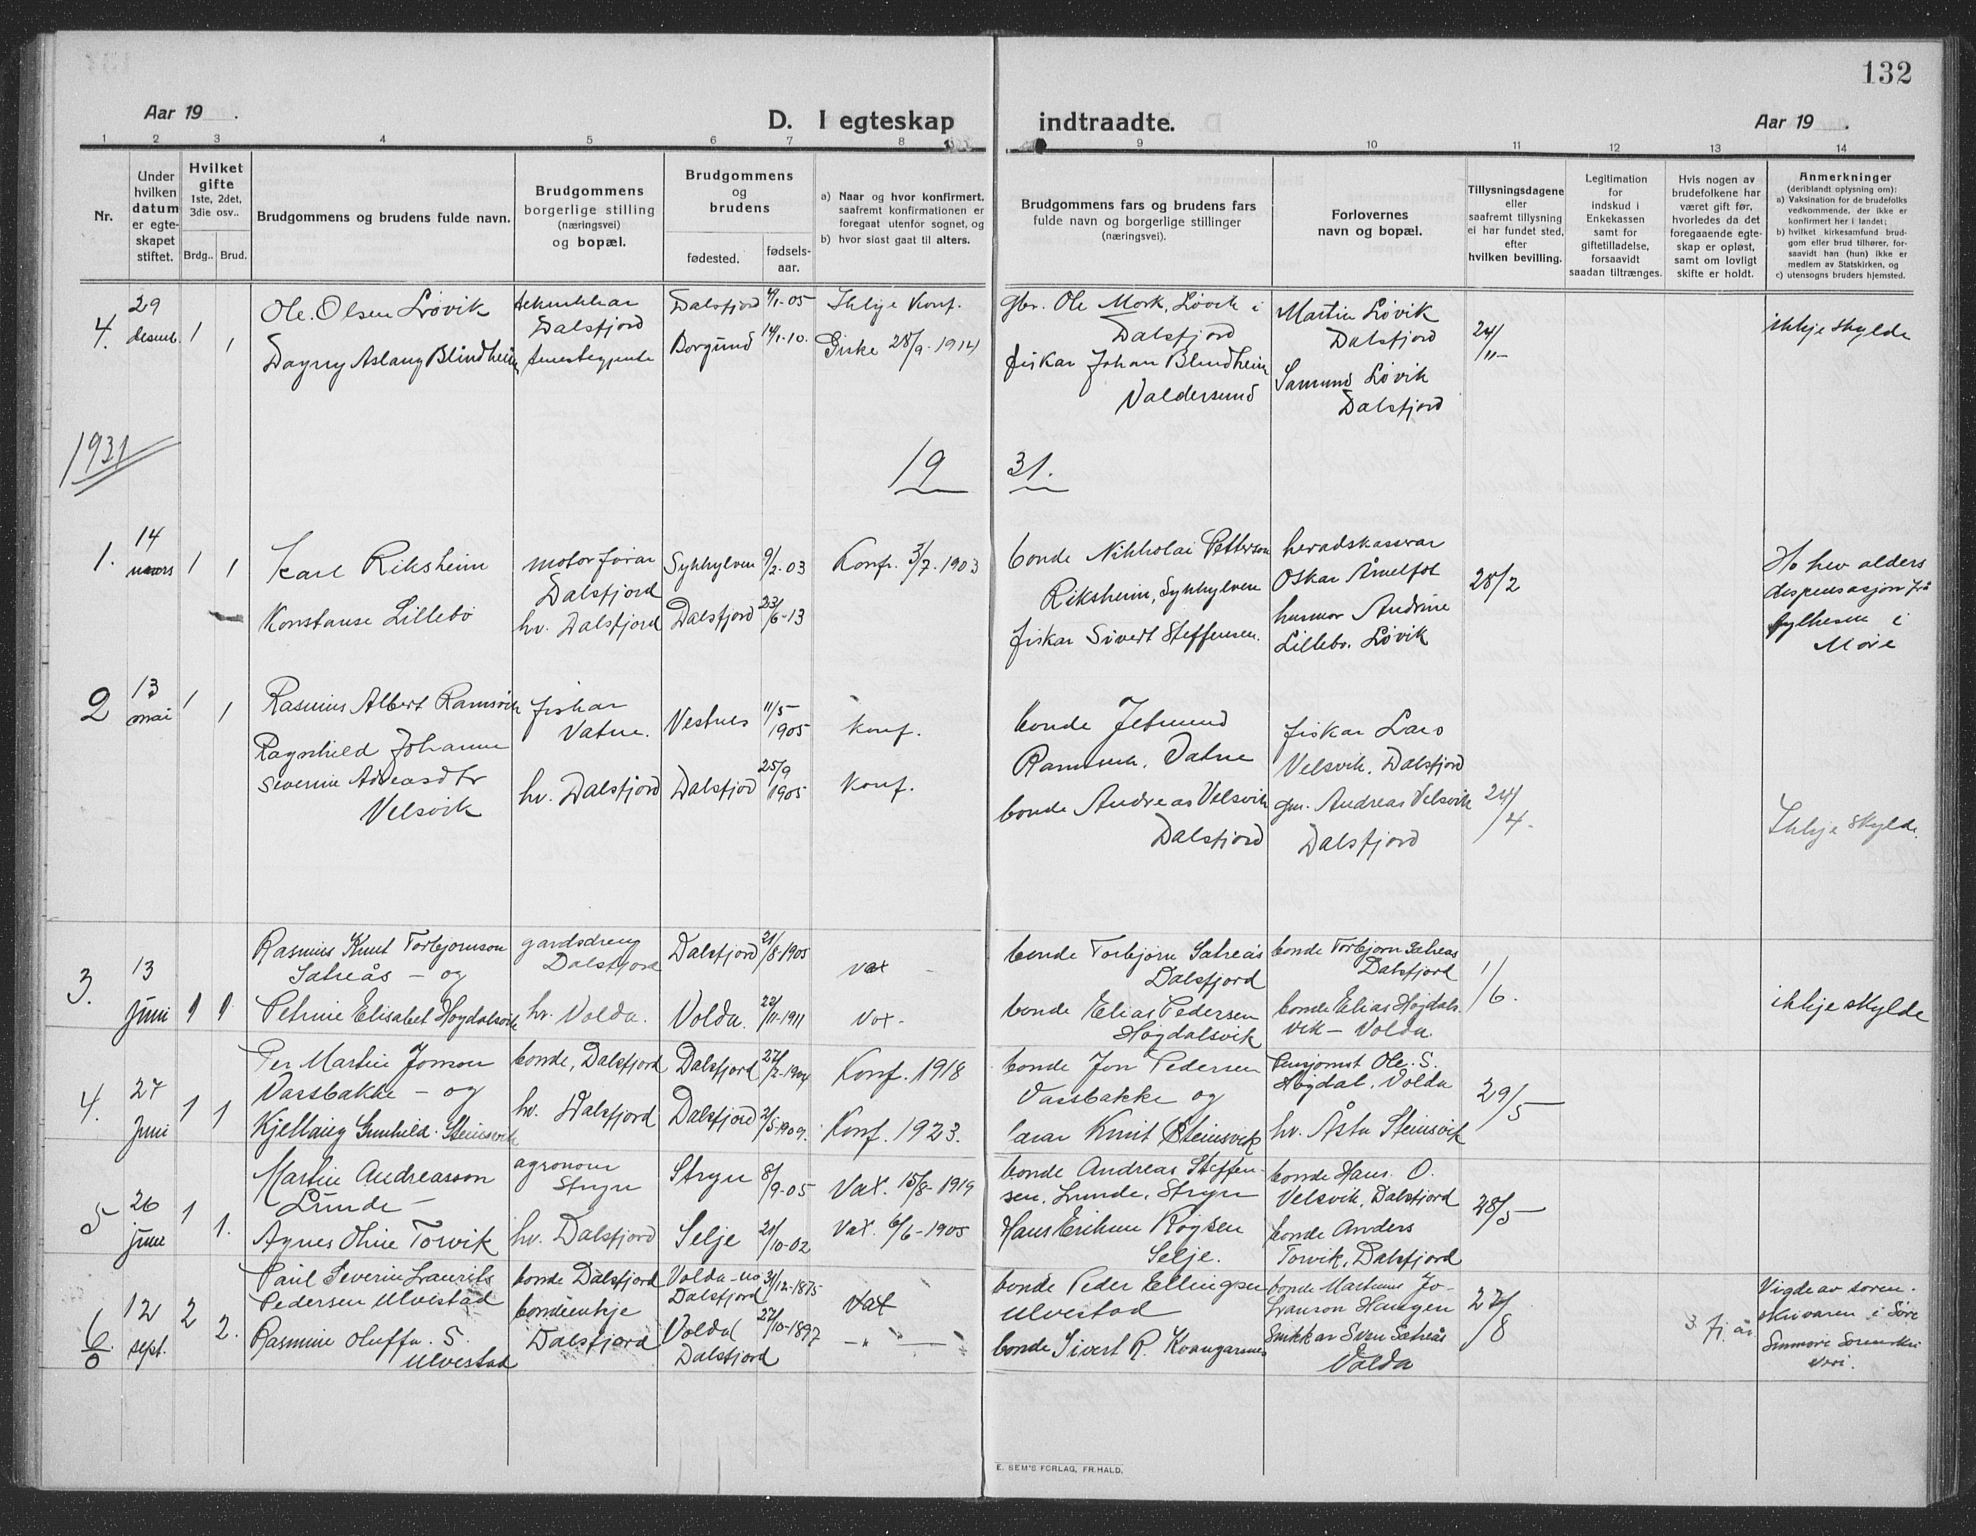 132
Aar 19 .
D. I egteskap indtraadte.
Aar 19 .
1 2 3 4 5 6 7 8 9 10 11 12 13 14
Nr.
Under
hvilken
datum
er egte-
skapet
stiftet.
Hvilket
gifte
1ste, 2det,
3die osv..
Brdg.. Brud.
Brudgommens og brudens fulde navn.
Brudgommens
borgerlige stilling
(næringsvei)
og bopæl.
Brudgommens
og
brudens
fødested.
fødsels-
aar.
a) Naar og hvor konfirmert,
saafremt konfirmationen er
foregaat utenfor sognet, og
b) hvor sidst gaat til alters.
Brudgommens fars og brudens fars
fulde navn og borgerlige stillinger
(næringsvei).
Forlovernes
navn og bopæl.
Tillysningsdagene
eller
saafremt tillysning
ei har fundet sted,
efter
hvilken bevilling.
Legitimation
for
indskud i
Enkekassen
samt for
giftetilladelse,
forsaavidt
saadan tiltrænges.
Hvis nogen av
brudefolkene har
været gift før,
hvorledes da det
foregaaende egte-
skap er opløst,
samt om lovligt
skifte er holdt.
Anmerkninger
(deriblandt oplysning om):
a) Vaksination for de brudefolks
vedkommende, der ikke er
konfirmert her i landet;
b) hvilket kirkesamfund brud-
gom eller brud tilhører, for-
saavidt han (hun) ikke er
medlem av Statskirken, og
c) utensogns bruders hjemsted.
4.
29
desemb.
1 1
Ole. Olsen Løvik
Dagny Aslaug Blindheim
Dalsfjord
Dalsfjord 4/1-05
Borgund 14/1-10.
Ikkje Konf.
Giske 28/9-1914
gbr. Ole Mork, Løvik i
Dalsfjord
fiskar Johan Blindheim
Valdersund
Martin Løvik
Dalsfjord
Samund Løvik
Dalsfjord
24/11-
ikkje skylde
1931
19 31.
1.
14
mars
1 1
Karl Riksheim
Konstanse Lillebø
motorførar
Dalsfjord
hv. Dalsfjord
Sykkylven 9/2-03
Dalsfjord 23/6-13
Konfr. 3/7-1903
bonde Nikkolai Petterson
Riksheim, Sykkylven
fiskar Sivert Steffensen.
heradskasserar
Oskar Åmelfot
husmor Andrine
Lillebø. Løvik
28/2
Ho hev alders
dispensasjon frå
fylkesm i
Møre
2
13
mai
1 1
Rasmus Albert Ramsvik
Ragnhild Johanne
Severine Andreasdtr
Velsvik
fiskar
Vatne.
hv. Dalsfjord
Vestnes 11/5 1905
Dalsfjord 25/9 1905
Konf.
Konf.
bonde Jetmund
Ramsvik, Vatne
bonde Andreas Velsvik
Dalsfjord
fiskar Lars
Velsvik, Dalsfjord
gm. Andreas Velsvik
Dalsfjord
24/4.
Ikkje skylde
3.
13
juni
1 1
Rasmus Knut Torbjørnson
Sætreås - og
Petrine Elisabet Høydalsvik
gardsdreng
Dalsfjord
hv. Volda.
Dalsfjord 21/8-1905
Volda. 22/11-1911
vax -
vax -
bonde Torbjørn Sætreås
Dalsfjord
bonde Elias Pedersen
Høgdalsvik
bonde Torbjørn Sætreås
Dalsfjord
bonde Elias Høgdals-
vik - Volda
1/6.
ikkje skylde
4.
27
juni
1 1
Per Martin Jonson
Vassbakke - og
Kjellaug Gunhild. Steinsvik
bonde, Dalsfjord
hv. Dalsfjord
Dalsfjord 27/2-1904
Dalsfjord 2/5-1909.
Konf. 1918
Konf. 1923.
bonde Jon Pedersen
Vassbakke og
lærar Knut Steinsvik
Pensjonist Ole. S.
Høgdal, Volda
hv. Åsta Steinsvik
29/5
5
26
june
1 1.
Martin Andreasson
Lunde -
Agnes Oline Torvik
agronom
Stryn
hv. Dalsfjord
Stryn 8/9-05
Selje 21/10-02
Vax. 15/8-1919
Vax. 6/6-1905
bonde Andreas Steffen-
sen. Lunde, Stryn
Hans Eriksen Røysen
Selje.
bonde Hans. O.
Velsvik, Dalsfjord
bonde Anders
Torvik, Dalsfjord
28/5
6/0
12
sept.
2 2.
Paul Severin Laurits
Pedersen Ulvestad
Rasmine Oluffa. S.
Ulvestad
bonde Dalsfjord
bondeenkje
Dalsfjord
Volda - no
Dalsfjord 31/12-1875
Volda(
Dalsfjord 27/10-1897
vax
- " -
bonde Peder Ellingsen
Ulvestad
bonde Sivert R. Kvangarsnes
bonde Mathias Jo-
hanson Haugen
Snikkar Sven Sætreås
Volda
27/8
3. fj. år
Vigde av soren-
skrivaren i Søre
Sunnmøre Sorenskri
veri.
E. SEM'S FORLAG, FR.HALD.